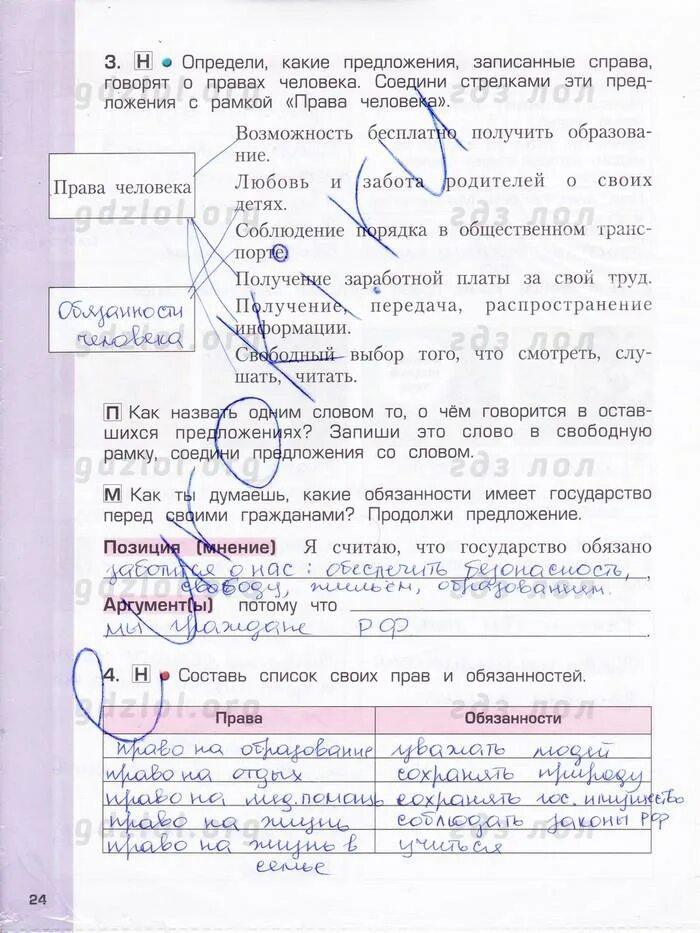 3. Н • Определи, какие предложения, записанные справа,
говорят о правах человека. Соедини стрелками эти пред-
ложения с рамкой «Права человека».
Возможность бесплатно получить образова-
ние.
Права человека
Любовь и забота родителей о своих
детях.
Соблюдение порядка в общественном транс-
порте.
Получение заработной платы за свой труд.
Обязанности
человека
Получение, передача, распространение
информации.
Свободный выбор того, что смотреть, слу-
шать, читать.
П Как назвать одним словом то, о чём говорится в остав-
шихся предложениях? Запиши это слово в свободную
рамку, соедини предложения со словом.
М Как ты думаешь, какие обязанности имеет государство
перед своими гражданами? Продолжи предложение.
Позиция (мнение) Я считаю, что государство обязано
заботится о нас: обеспечить безопасность,
свободу, жильём, образованием.
Аргумент(ы) потому что
мы граждане РФ
4. Н • Составь список своих прав и обязанностей.
Права Обязанности
право на образование уважать людей
право на отдых сохранять природу
право на мед. помощь сохранять гос. имущество
право на жизнь соблюдать законы РФ
право на жизнь в учиться
семье
24
gdzlol.org гдз лол
gdzlol.org гдз лол
gdzlol.org гдз лол
gdzlol.org гдз лол
gdzlol.org гдз лол
gdzlol.org гдз лол
gdzlol.org гдз лол